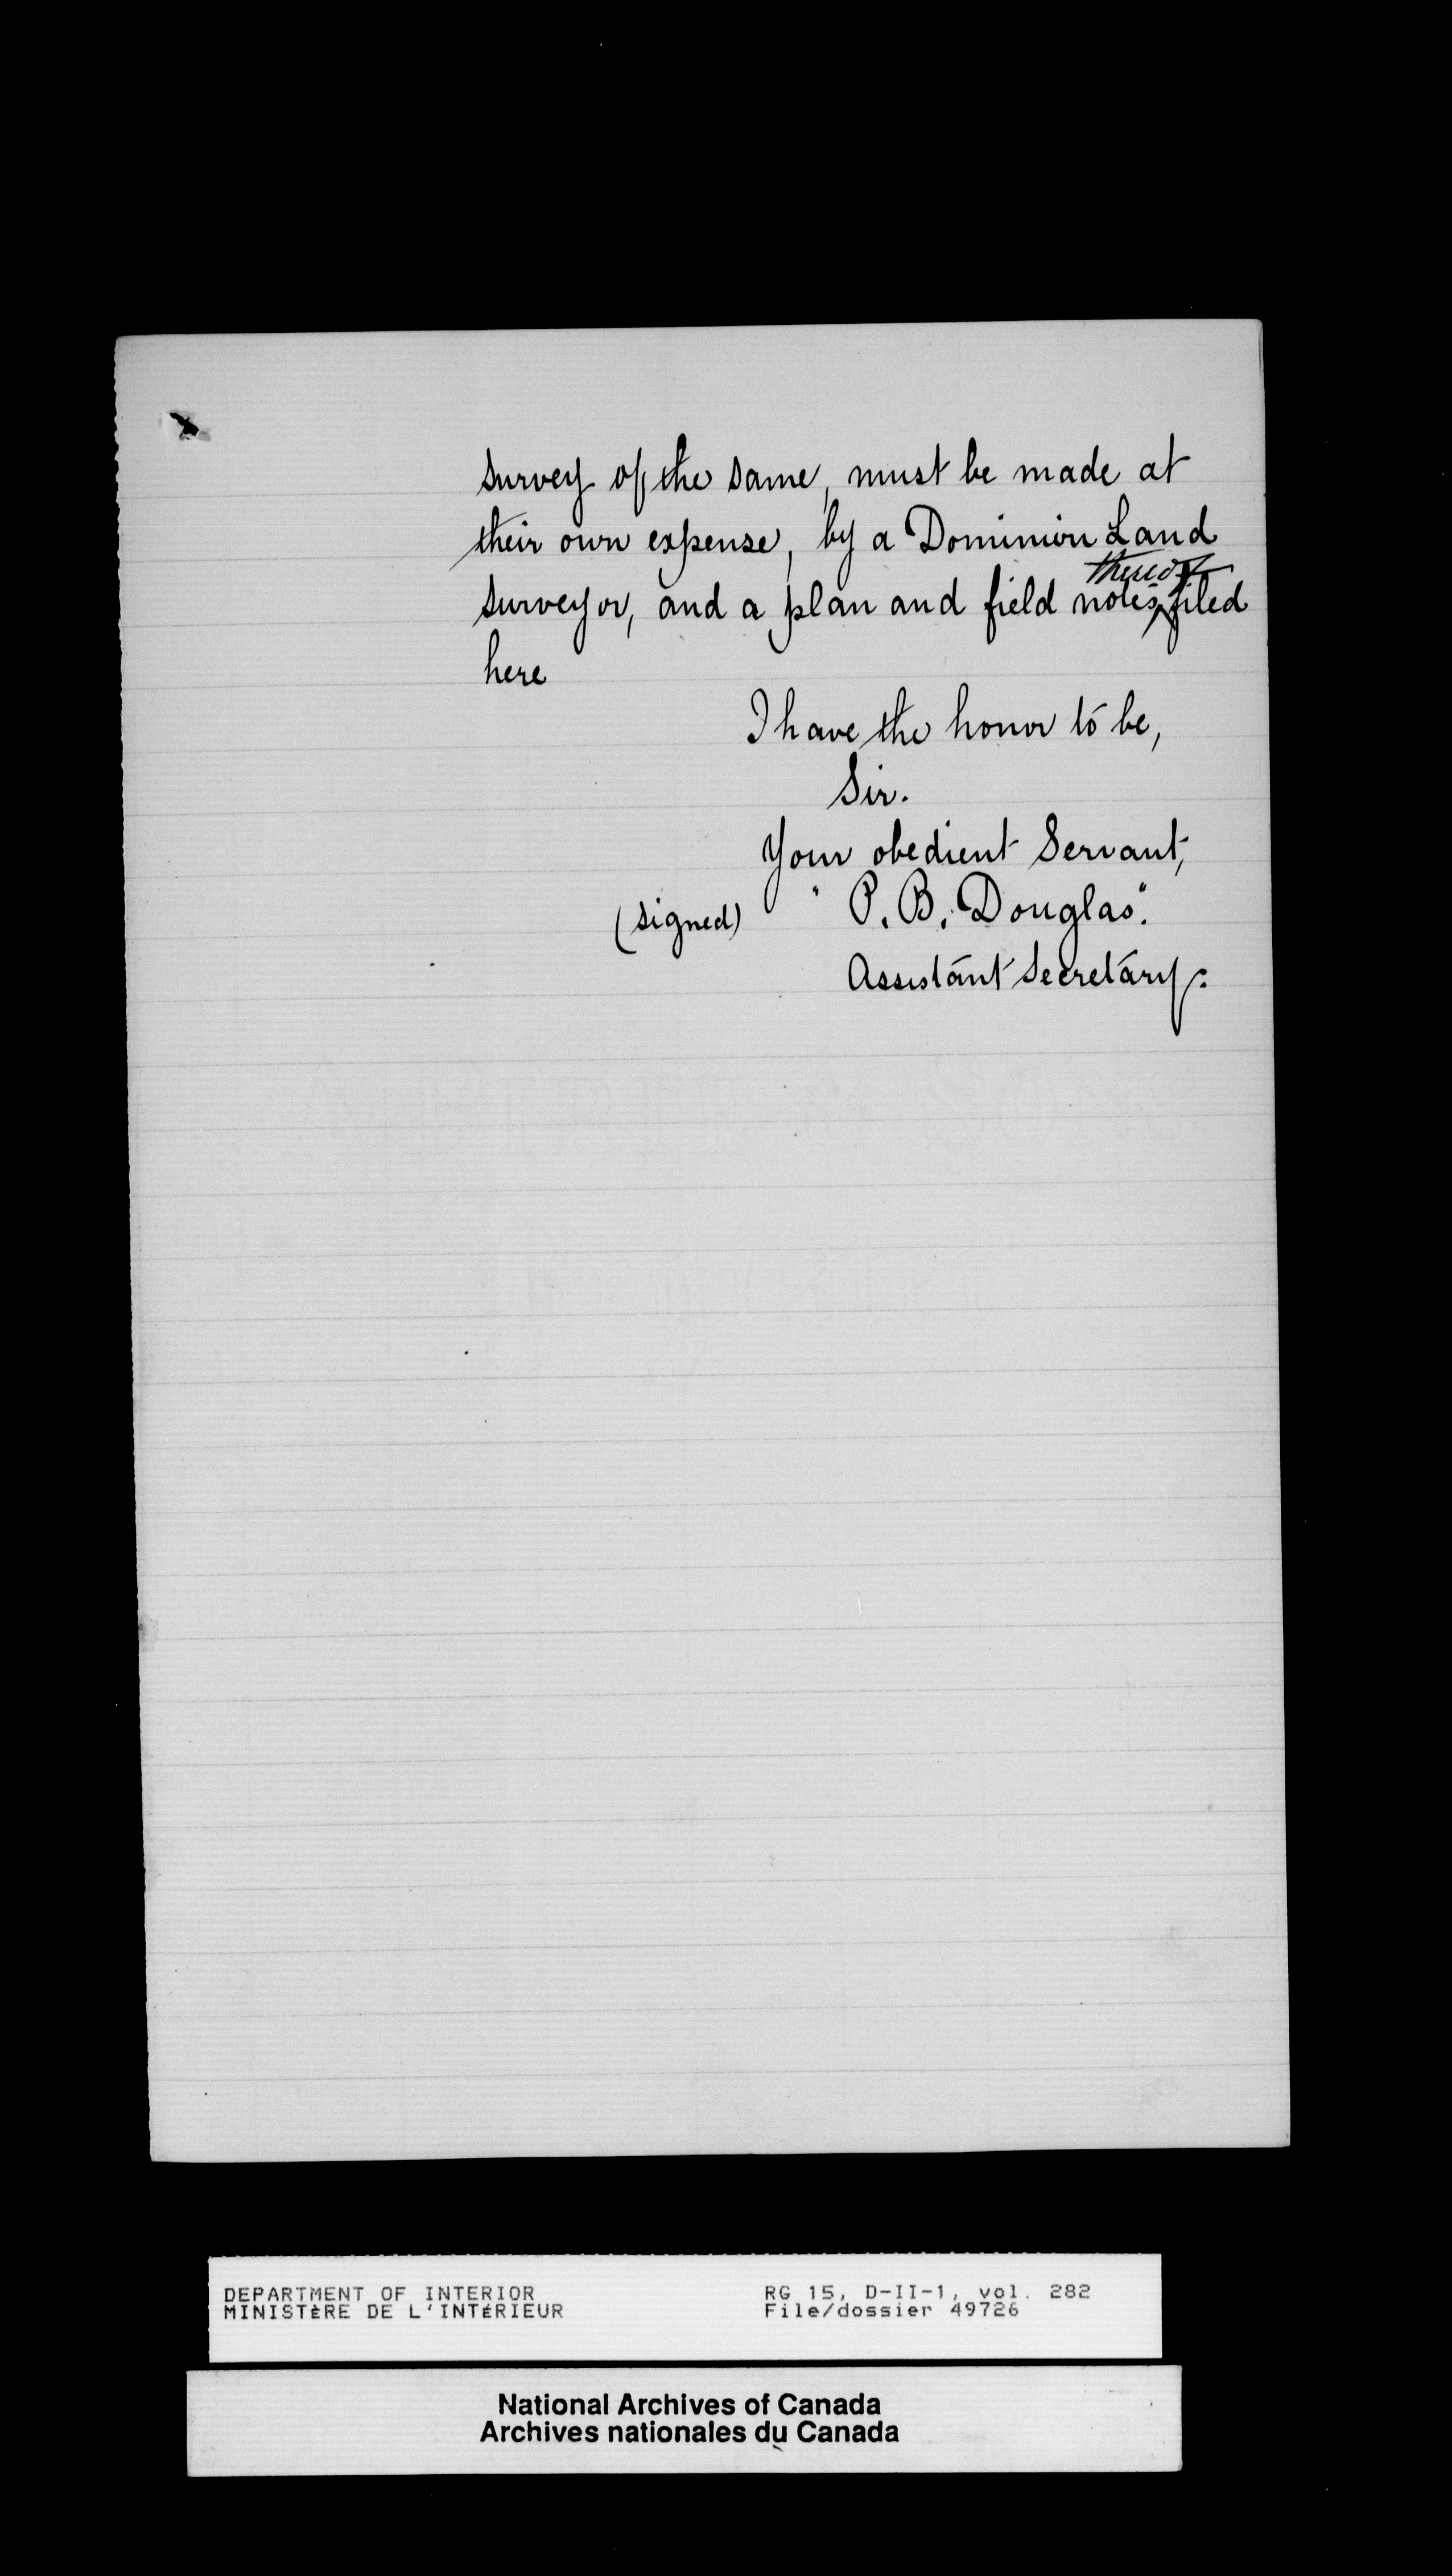 survey of the same, must be made at
their own expense, by a Dominion Land
thereof
surveyor, and a plan and field notes ^ filed
here
I have the honor to be,
Sir.
Your obedient Servant,
(signed) "P. B. Douglas".
Assistant Secretary.
DEPARTMENT OF INTERIOR
MINISTÈRE DE L'INTÉRIEUR
RG 15, D-II-1, vol. 282
File/dossier 49726
National Archives of Canada
Archives nationales du Canada